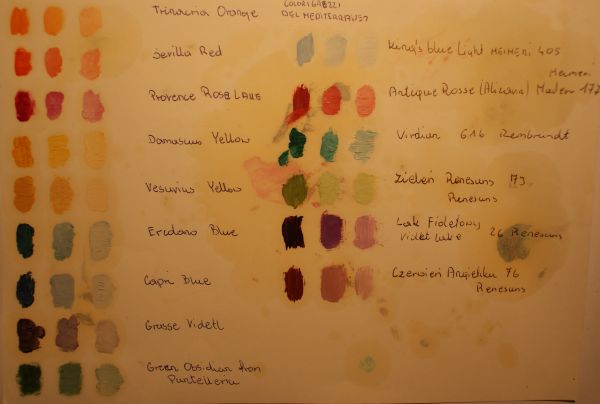 COLORI GABZZI
DEL MEDITERRANEO
Trinacria Orange
Sevilla Red
Provence ROSE LAKE
Damascus Yellow
Vesuvius Yellow
Eridano Blue
Capri Blue
Grasse Videtl
Green Obsidian from
Pantelleria
King's blue Light MEIMERI 405
Meimeri
Antique Rosse (Alizarin) Madern 177
Viridian 616 Rembrandt
Zieleń Renesans 73
Renesans
Lak Fioletowy
Violet Lake 26 Renesans
Czerwień Angielska 76
Renesans